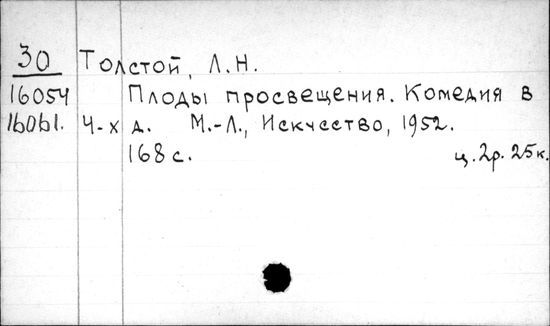 30 Толстой, Л.Н.
16054 Плоды просвещения. Комедия в
16061. 4-х д. М.-Л., Искусство, 1952.
168 с. ц. 2р. 25к.